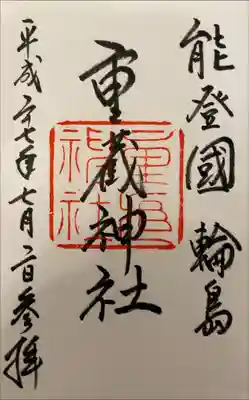 能登國 輪島
重蔵神社
平成二十七年七月二日参拝
重蔵
神社